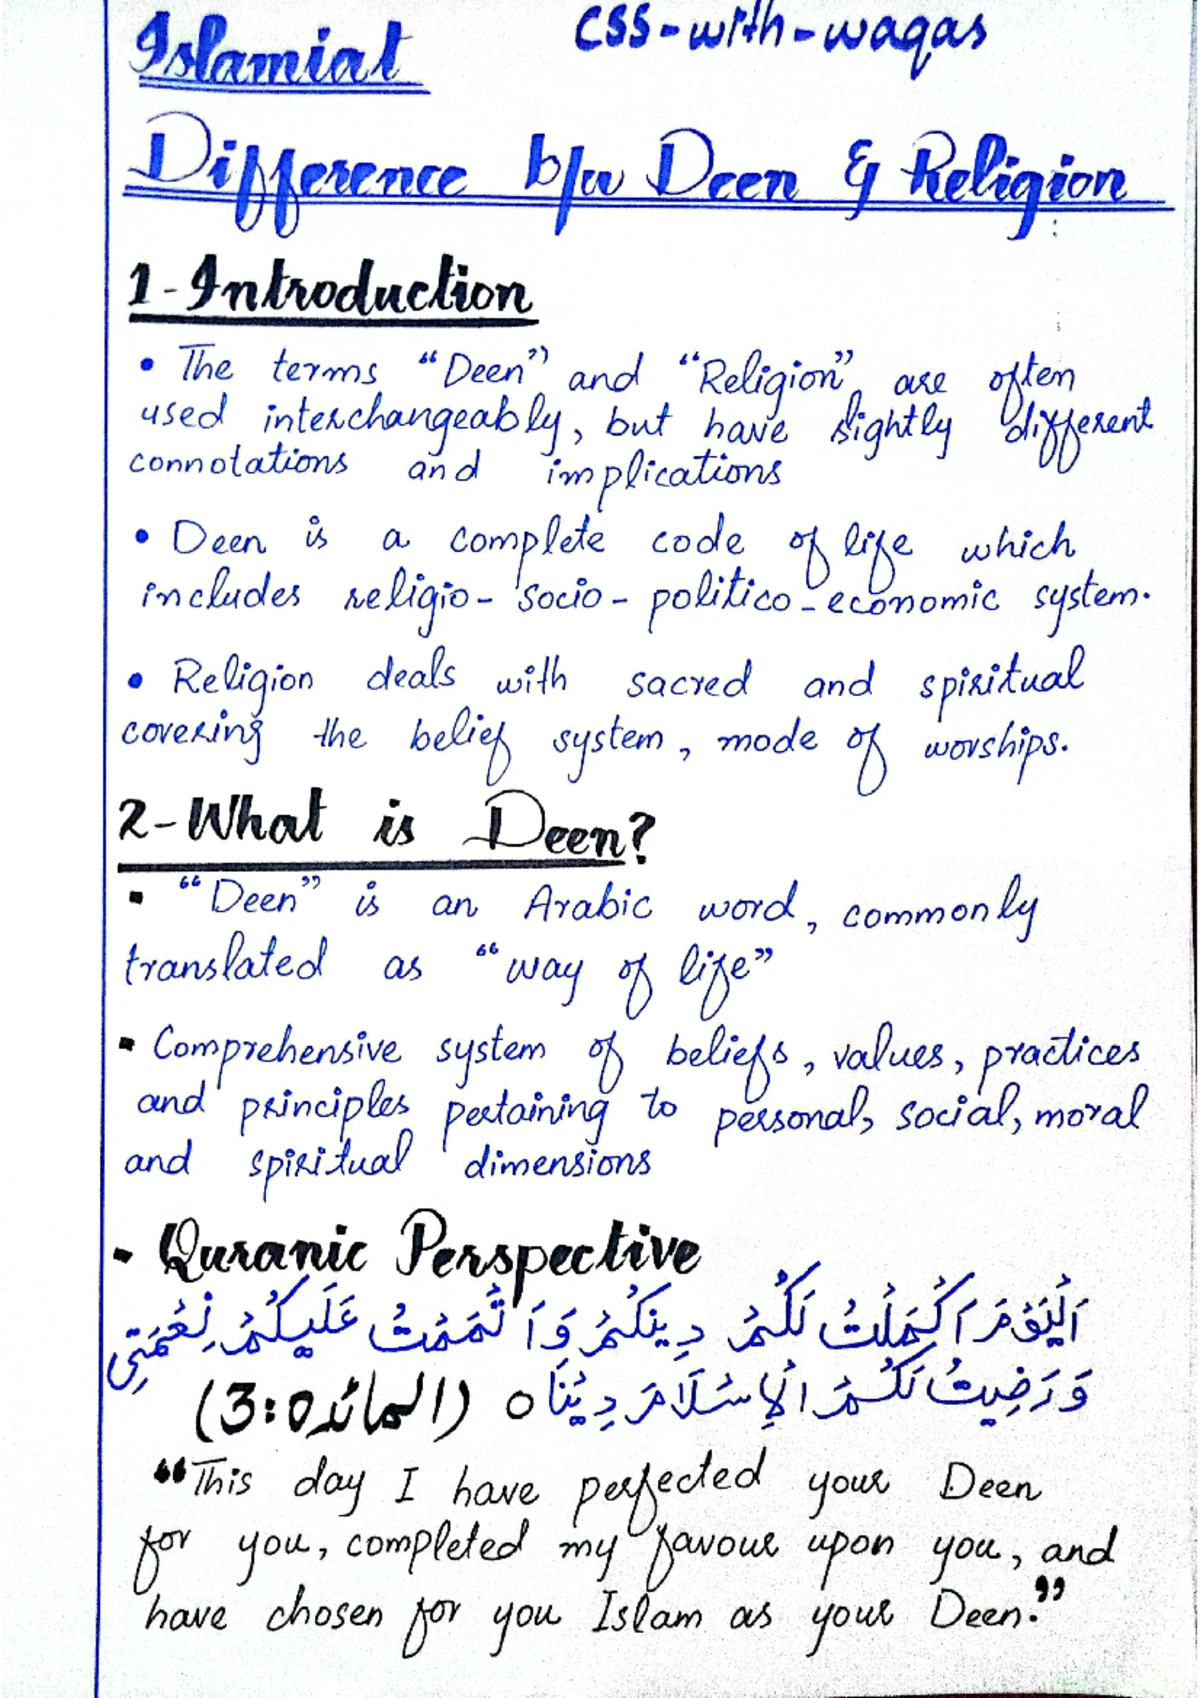 Islamiat
CSS-with-waqas
Difference b/w Deen & Religion
1-Introduction
• The terms "Deen" and "Religion" are often
used interchangeably, but have slightly different
connotations and implications
• Deen is a complete code of life which
includes religio-socio-politico-economic system.
• Religion deals with sacred and spiritual
covering the belief system, mode of worships.
2-What is Deen?
▪ "Deen" is an Arabic word, commonly
translated as "way of life"
▪ Comprehensive system of beliefs, values, practices
and principles pertaining to personal, social, moral
and spiritual dimensions
▪ Quranic Perspective
اَلْيَوْمَ اَكْمَلْتُ لَكُمْ دِينَكُمْ وَاَتْمَمْتُ عَلَيْكُمْ نِعْمَتِى
وَرَضِيتُ لَكُمُ الْاِسْلَامَ دِيْنًا ه (المائدہ:3)
"This day I have perfected your Deen
for you, completed my favour upon you, and
have chosen for you Islam as your Deen."